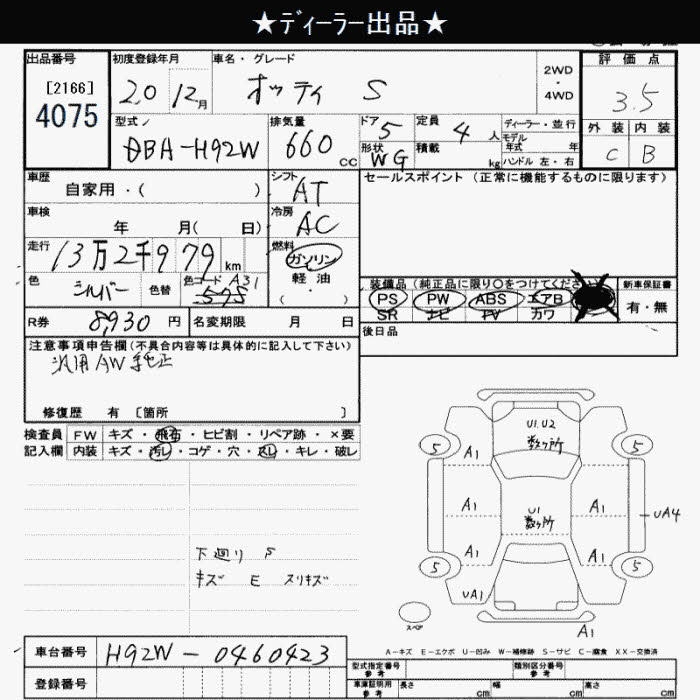 ★ディーラー出品★
出品番号 初度登録年月 車名・グレード 2WD・4WD 評価点
[2166] 4075 20 12月 オッティ S 3.5
型式 排気量 ドア 5 定員 4 人 ディーラー・並行 外装 内装
DBA-H92W 660 CC 形状 WG 積載 kg モデル年式 年 ハンドル 左・右 C B
車歴 自家用・( ) シフト AT セールスポイント (正常に機能するものに限ります)
車検 年 月( 日) 冷房 AC
走行 13万2千979 km 燃料 ガソリン
色 シルバー 色替 色コード A31 軽油 ( )
装備品 (純正品に限り○をつけてください) 新車保証書
PS PW ABS エアB 有・無
SR ナビ TV カワ
R券 8,930 円 名変期限 月 日 後日品
注意事項申告欄 (不具合内容等は具体的に記入して下さい)
汎用AW 純正
修復歴 有 [箇所 ]
検査員 FW キズ・飛石・ヒビ割・リペア跡・×要
記入欄 内装 キズ・汚レ・コゲ・穴・スレ・キレ・破レ
U1.U2
数ヶ所
5 A1 5
A1 U1 数ヶ所 A1 UA4
A1 A1
5 5
UA1
下廻り S
キズ E スリキズ
スペア
A1
A-キズ E-エクボ U-凹み W-補修跡 S-サビ C-腐食 XX-交換済
車台番号 H92W-0460423
型式指定番号 参考 類別区分番号 参考
登録番号 車庫証明用 参考 長さ cm 幅 cm 高さ cm